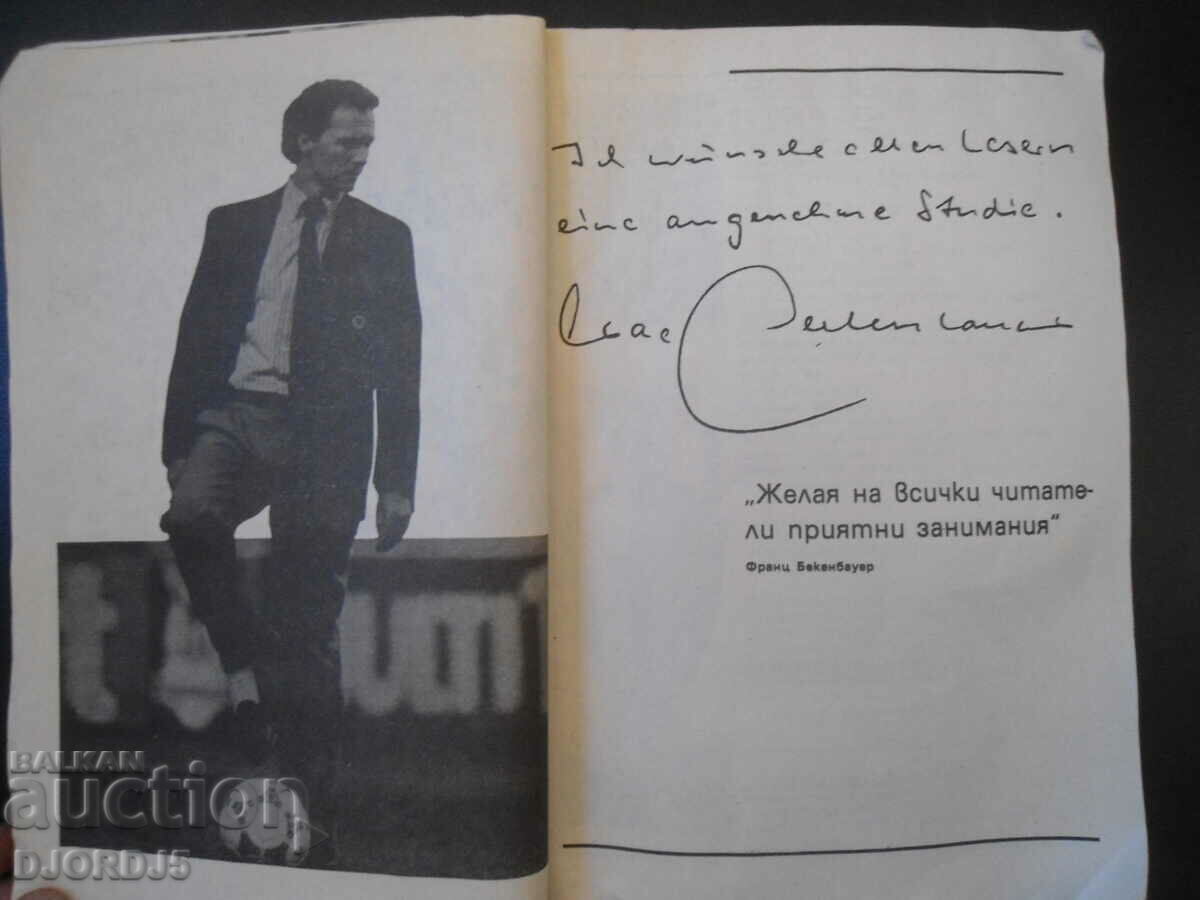 Ich wünsche allen Lesern
eine angenehme Studie.
Franz Beckenbauer
„Желая на всички читате-
ли приятни занимания“
Франц Бекенбауер
BALKAN
auction
DJORDJ5